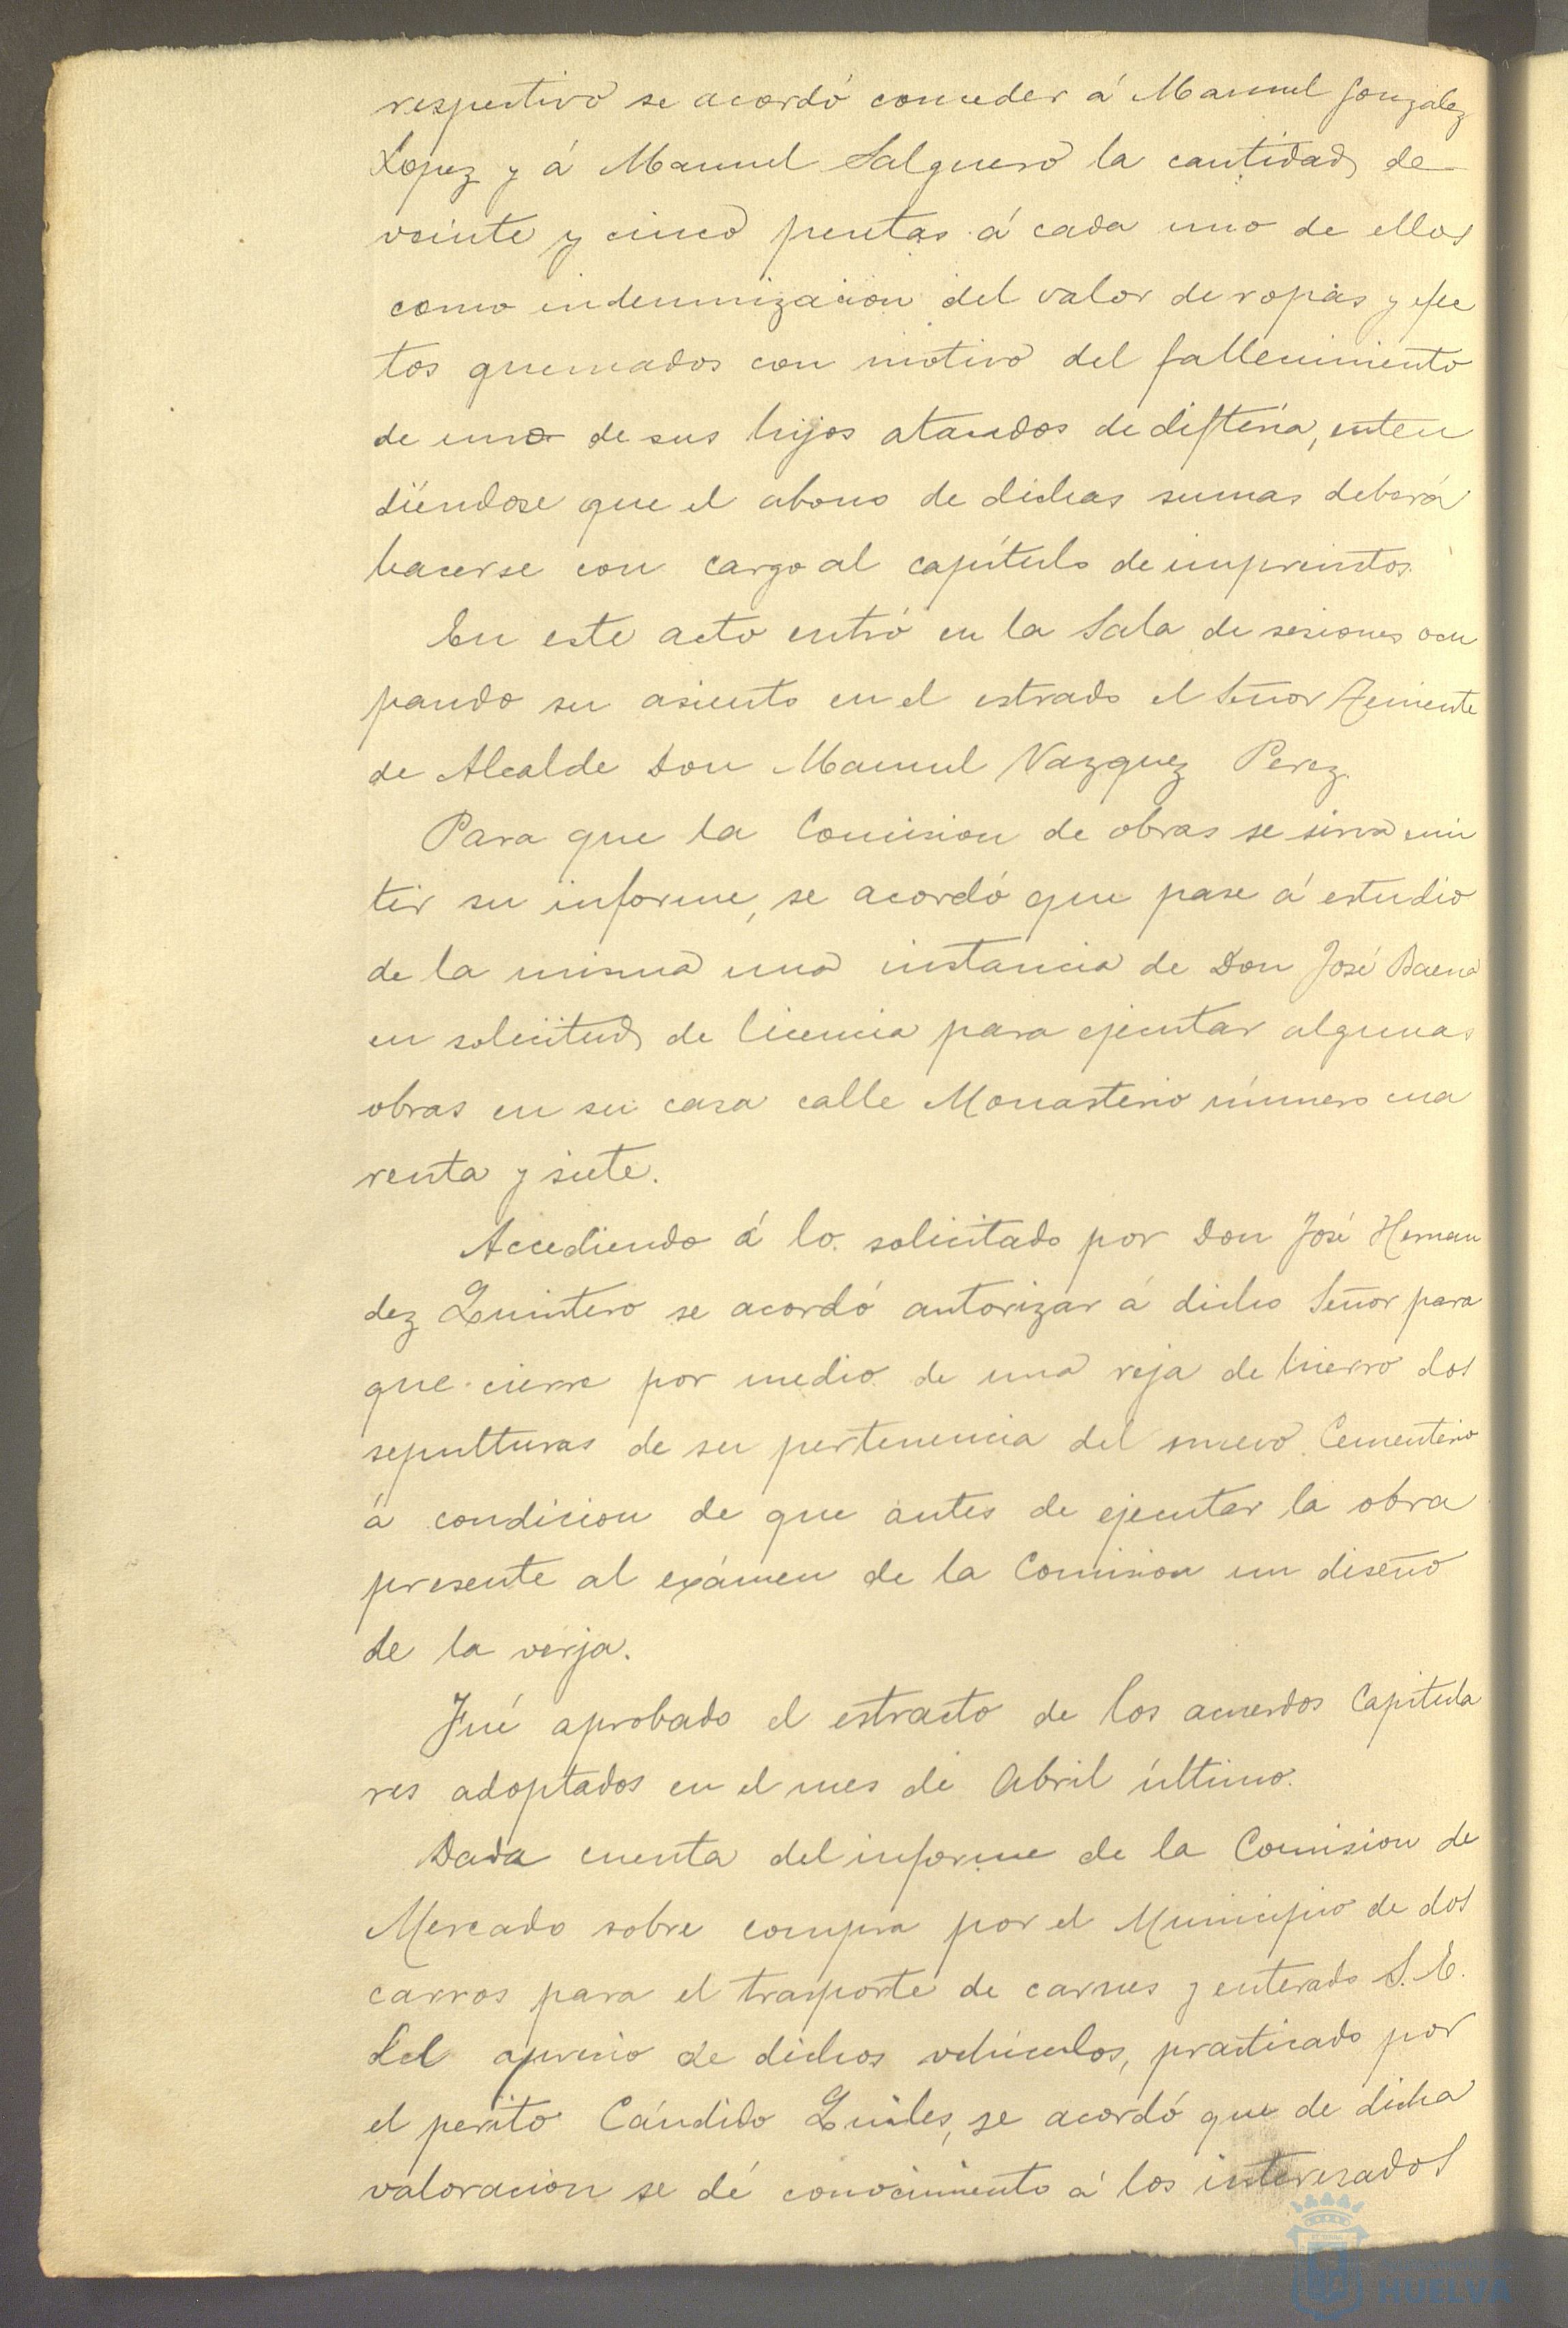 respectivo se acordó conceder á Manuel Gonzalez
Lopez y á Manuel Salguero la cantidad de
veinte y cinco pesetas á cada uno de ellos
como indemnizacion del valor de ropas y efec
tos quemados con motivo del fallecimiento
de uno de sus hijos atacados de difteria, enten
diéndose que el abono de dichas sumas deberá
hacerse con cargo al capítulo de imprevistos.
En este acto entró en la Sala de sesiones ocu
pando su asiento en el estrado el Señor Teniente
de Alcalde Don Manuel Vazquez Perez.
Para que la Comision de obras se sirva emi
tir su informe, se acordó que pase á estudio
de la misma una instancia de Don José Baena
en solicitud de licencia para ejecutar algunas
obras en su casa calle Monasterio número cua
renta y siete.
Accediendo á lo solicitado por Don José Hernan
dez Quintero se acordó autorizar á dicho Señor para
que cierre por medio de una reja de hierro dos
sepulturas de su pertenencia del nuevo Cementerio
á condicion de que antes de ejecutar la obra
presente al exámen de la Comision un diseño
de la verja.
Fué aprobado el estracto de los acuerdos Capitula
res adoptados en el mes de Abril último.
Dada cuenta del informe de la Comision de
Mercado sobre compra por el Municipio de dos
carros para el trasporte de carnes y enterado S. E.
del aprecio de dichos vehículos, practicado por
el perito Cándido Quiles, se acordó que de dicha
valoracion se dé conocimiento á los interesados
HUELVA